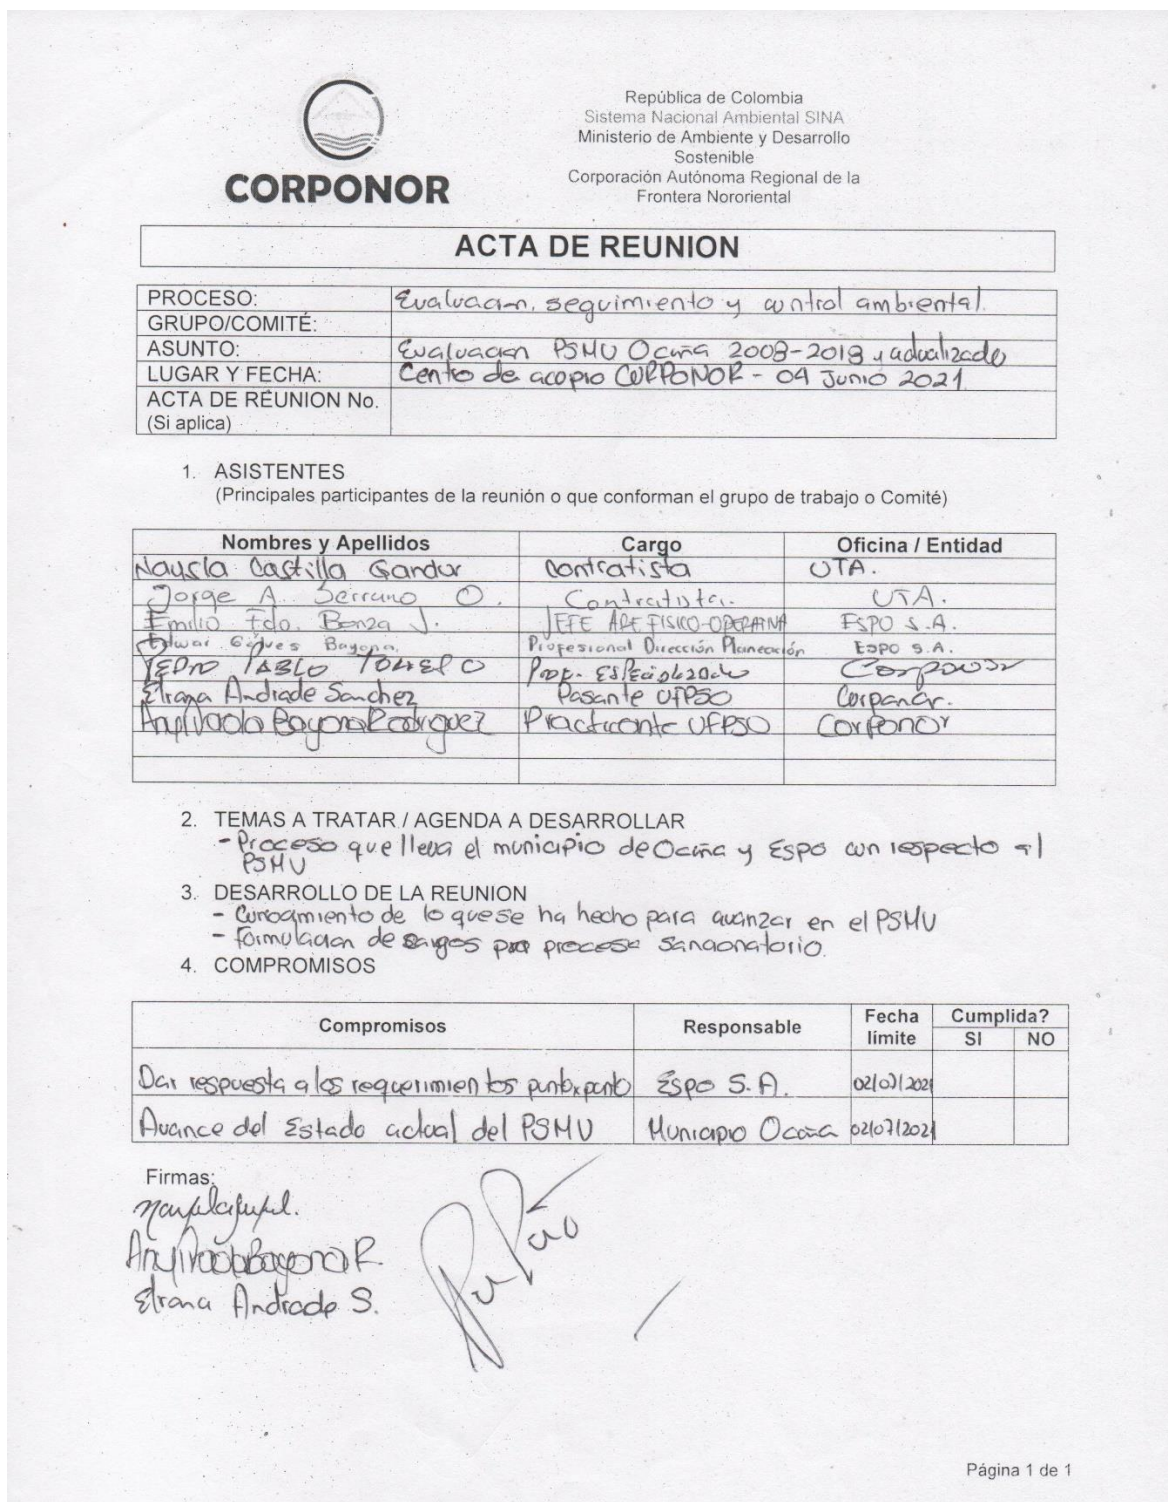 CORPONOR
República de Colombia
Sistema Nacional Ambiental SINA
Ministerio de Ambiente y Desarrollo
Sostenible
Corporación Autónoma Regional de la
Frontera Nororiental
ACTA DE REUNION
PROCESO: Evaluacion, seguimiento y control ambiental.
GRUPO/COMITÉ:
ASUNTO: Evaluacion PSMU Ocaña 2008-2018 y actualizado
LUGAR Y FECHA: Centro de acopio CORPONOR - 04 Junio 2021
ACTA DE REUNION No.
(Si aplica)
1. ASISTENTES
(Principales participantes de la reunión o que conforman el grupo de trabajo o Comité)
Nombres y Apellidos Cargo Oficina / Entidad
Nausla Castilla Gandur Contratista UTA.
Jorge A. Serrano O. Contratista. UTA.
Emilio Fdo. Bonza J. JEFE FISICO-OPERATIVA ESPO S.A.
Edwar Bayona Profesional Dirección Planeación ESPO S.A.
PEDRO PABLO Prof. Especializado Corponor
Andrade Sanchez Pasante UFPSO Corponor.
Bayona Rodriguez Practicante UFPSO Corponor
2. TEMAS A TRATAR / AGENDA A DESARROLLAR
- Proceso que lleva el municipio de Ocaña y Espo con respecto al
PSMU
3. DESARROLLO DE LA REUNION
- Conocimiento de lo que se ha hecho para avanzar en el PSMU
- Formulacion de cargos proceso sancionatorio.
4. COMPROMISOS
Compromisos Responsable Fecha límite Cumplida?
SI NO
Dar respuesta a los requerimientos punto x punto Espo S.A. 02/07/2021
Avance del Estado actual del PSMU Municipio Ocaña 02/07/2021
Firmas:
Bayona R.
Andrade S.
Página 1 de 1